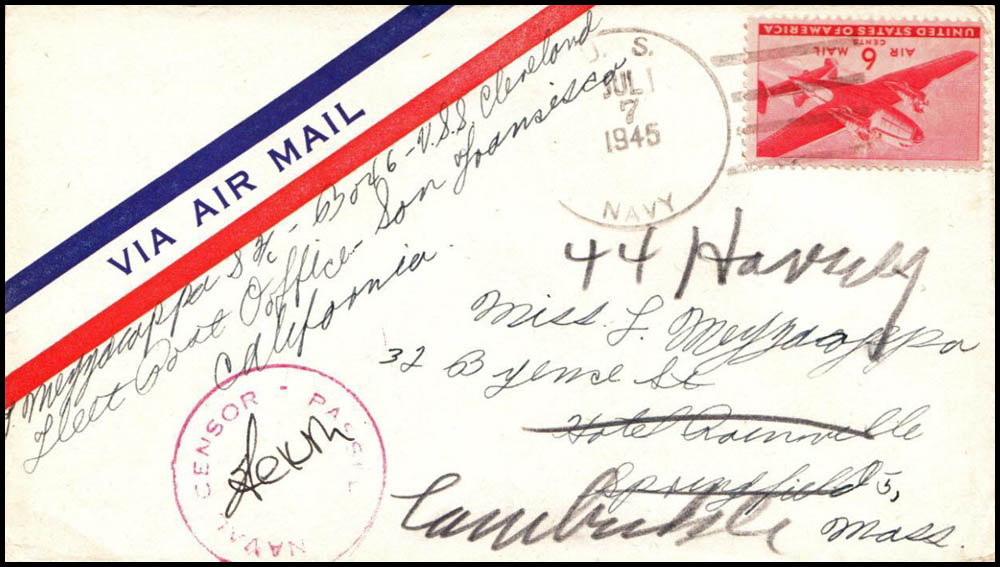 VIA AIR MAIL
Mezzacappa S 1/c - 63046 - U.S.S. Cleveland
Fleet Post Office - San Fransisco
California.
U. S.
JUL
7
1945
NAVY
UNITED STATES OF AMERICA
AIR 6 MAIL
CENTS
44 Harvey
Miss. L Mezzacappa
32 Byence St
Hotel
Springfield 5,
Cambridge
Mass.
NAVAL CENSOR - PASSED